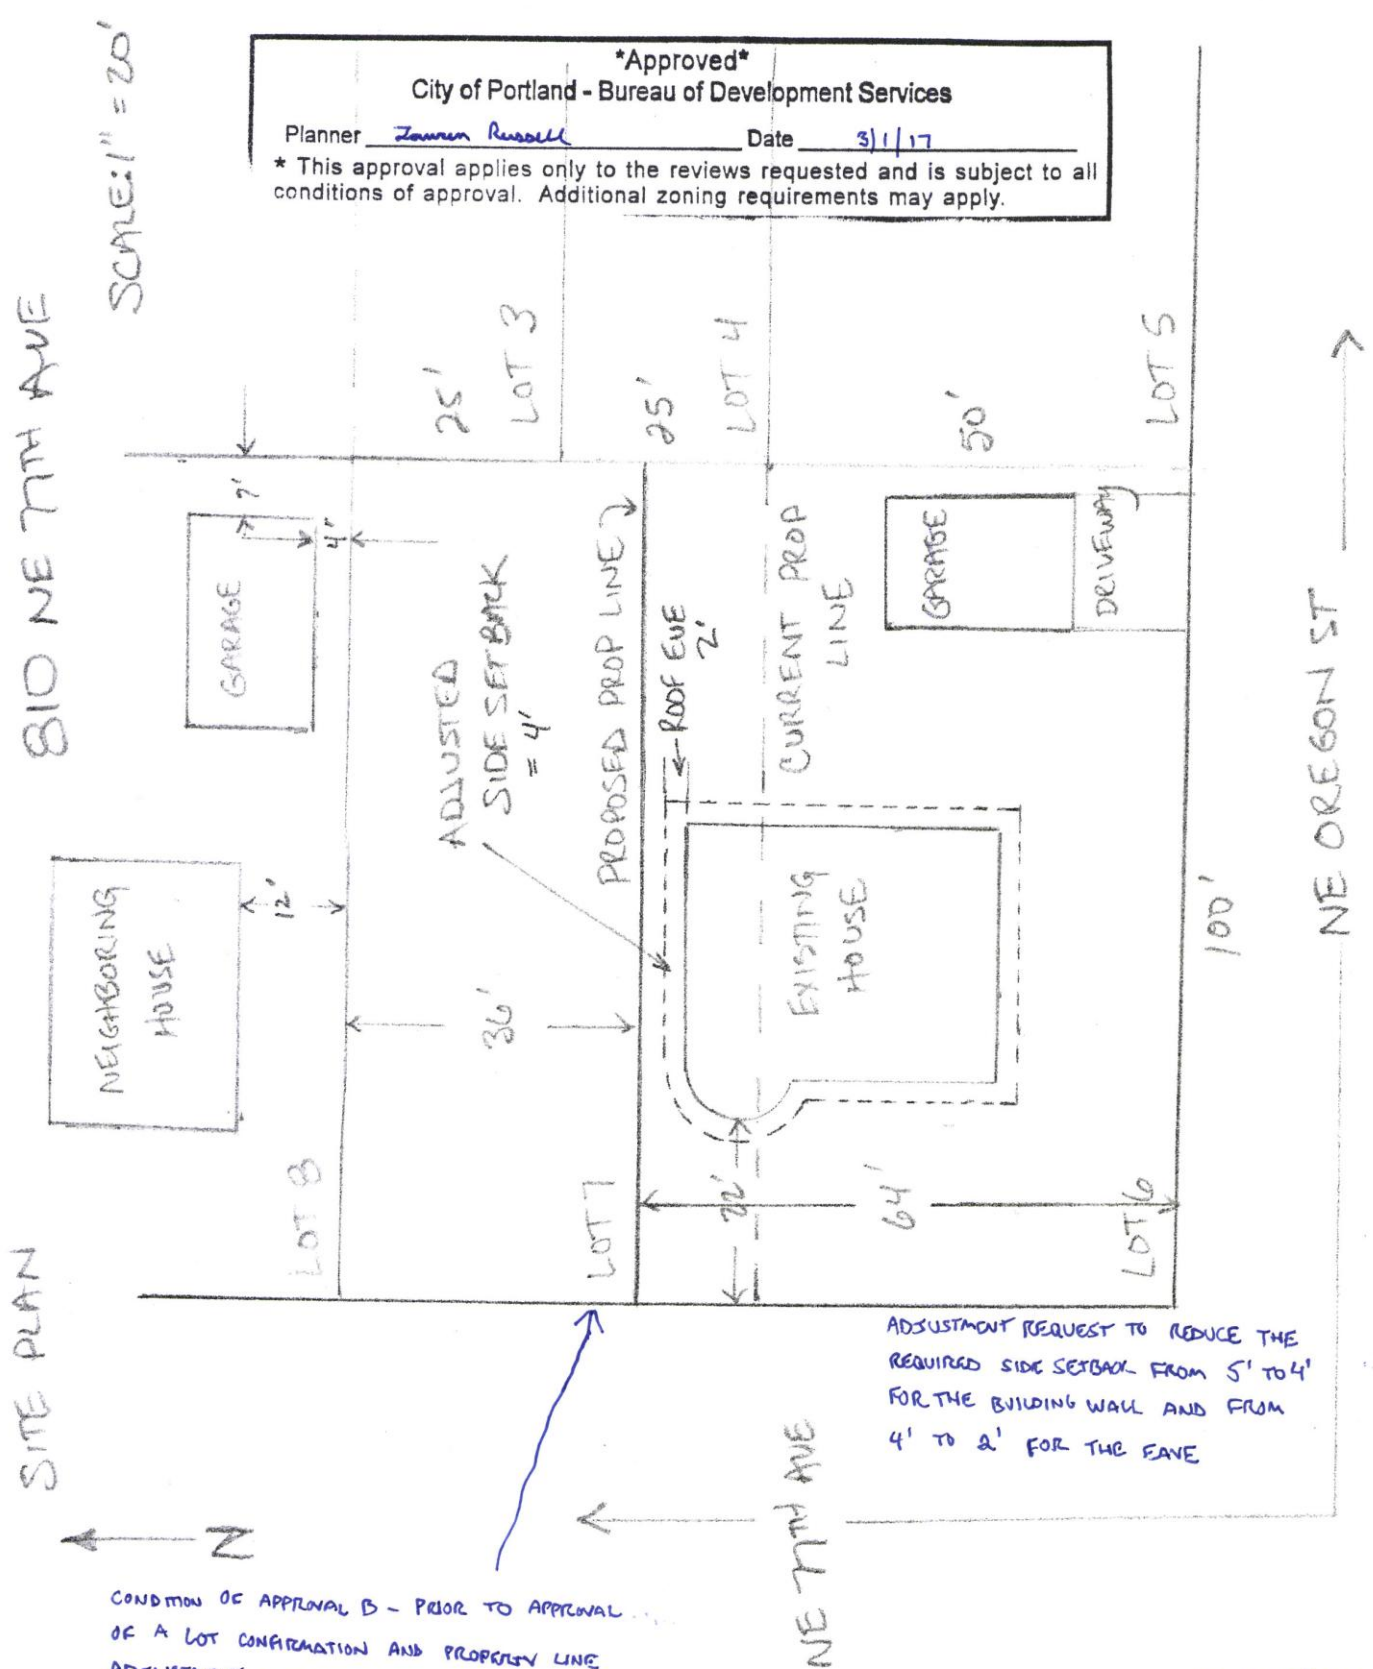 *Approved*
City of Portland - Bureau of Development Services
Planner Lauren Russell Date 3/1/17
* This approval applies only to the reviews requested and is subject to all
conditions of approval. Additional zoning requirements may apply.
SITE PLAN
810 NE 77TH AVE
SCALE: 1" = 20'
NEIGHBORING
HOUSE
12'
GARAGE
7'
4'
LOT 8
25'
LOT 3
36'
ADJUSTED
SIDE SETBACK
= 4'
LOT 7
PROPOSED PROP LINE
25'
LOT 4
ROOF EVE
2'
CURRENT PROP
LINE
22'
EXISTING
HOUSE
64'
GARAGE
DRIVEWAY
50'
LOT 5
LOT 6
100'
NE OREGON ST
NE 77TH AVE
N
ADJUSTMENT REQUEST TO REDUCE THE
REQUIRED SIDE SETBACK FROM 5' TO 4'
FOR THE BUILDING WALL AND FROM
4' TO 2' FOR THE EAVE
CONDITION OF APPROVAL B - PRIOR TO APPROVAL
OF A LOT CONFIRMATION AND PROPERTY LINE